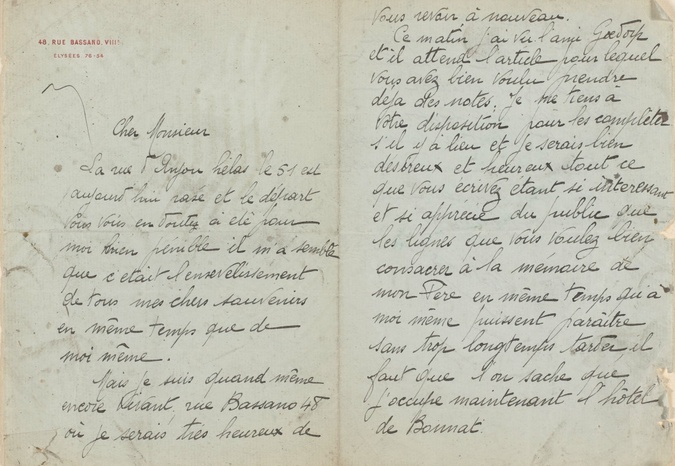 48, RUE BASSANO, VIIIᵉ
ELYSÉES 76-54
Cher Monsieur
La rue d'Anjou hélas le 51 est
aujourd'hui rasé et le départ
vous vous en doutez a été pour
moi bien penible il m'a semblé
que c'etait l'ensevelissement
de tous mes chers souvenirs
en même temps que de
moi même.
Mais je suis quand même
encore vivant, rue Bassano 48
où je serais très heureux de
vous revoir à nouveau.
Ce matin j'ai vu l'ami
et il attend l'article pour lequel
vous avez bien voulu prendre
deja des notes. Je me tiens à
votre disposition pour les compléter
s'il y à lieu et je serais bien
desireux et heureux tout ce
que vous ecrivez étant si interessant
et si apprécié du public que
les lignes que vous voulez bien
consacrer à la mémoire de
mon Père en même temps qu'à
moi même puissent paraître
sans trop longtemps tarder, il
faut que l'on sache que
j'occupe maintenant l'hôtel
de Bonnat.